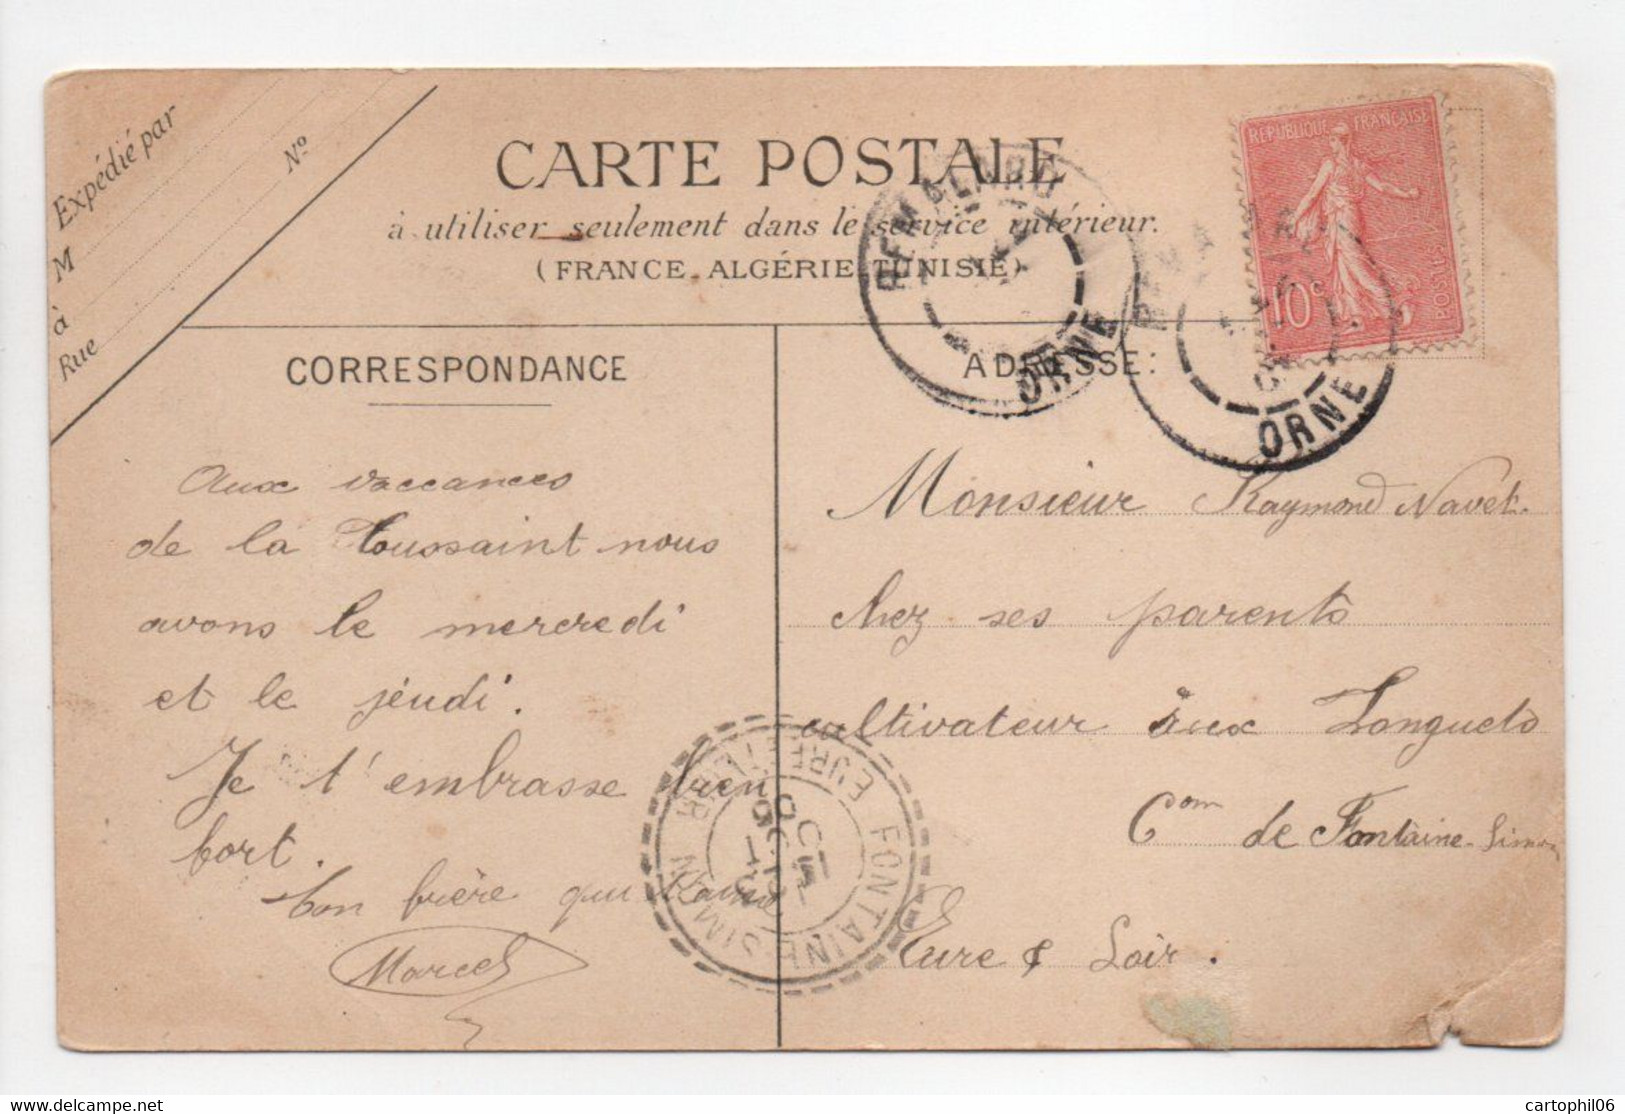 Expédié par
M
à
Rue
Nº
CARTE POSTALE
à utiliser seulement dans le service intérieur.
(FRANCE, ALGÉRIE, TUNISIE)
REPUBLIQUE FRANÇAISE
POSTES
10c
REMALARD
ORNE
ORNE
CORRESPONDANCE
ADRESSE:
Aux vaccances
de la Toussaint nous
avons le mercredi
et le jeudi.
Je t'embrasse bien
fort.
Ton frère qui t'aime
Marcel
Monsieur Raymond Navet.
chez ses parents
cultivateur aux Longuets
Com de Fontaine-Simon
Eure & Loir.
FONTAINE SIMON
EURE ET LOIR
cartophil06